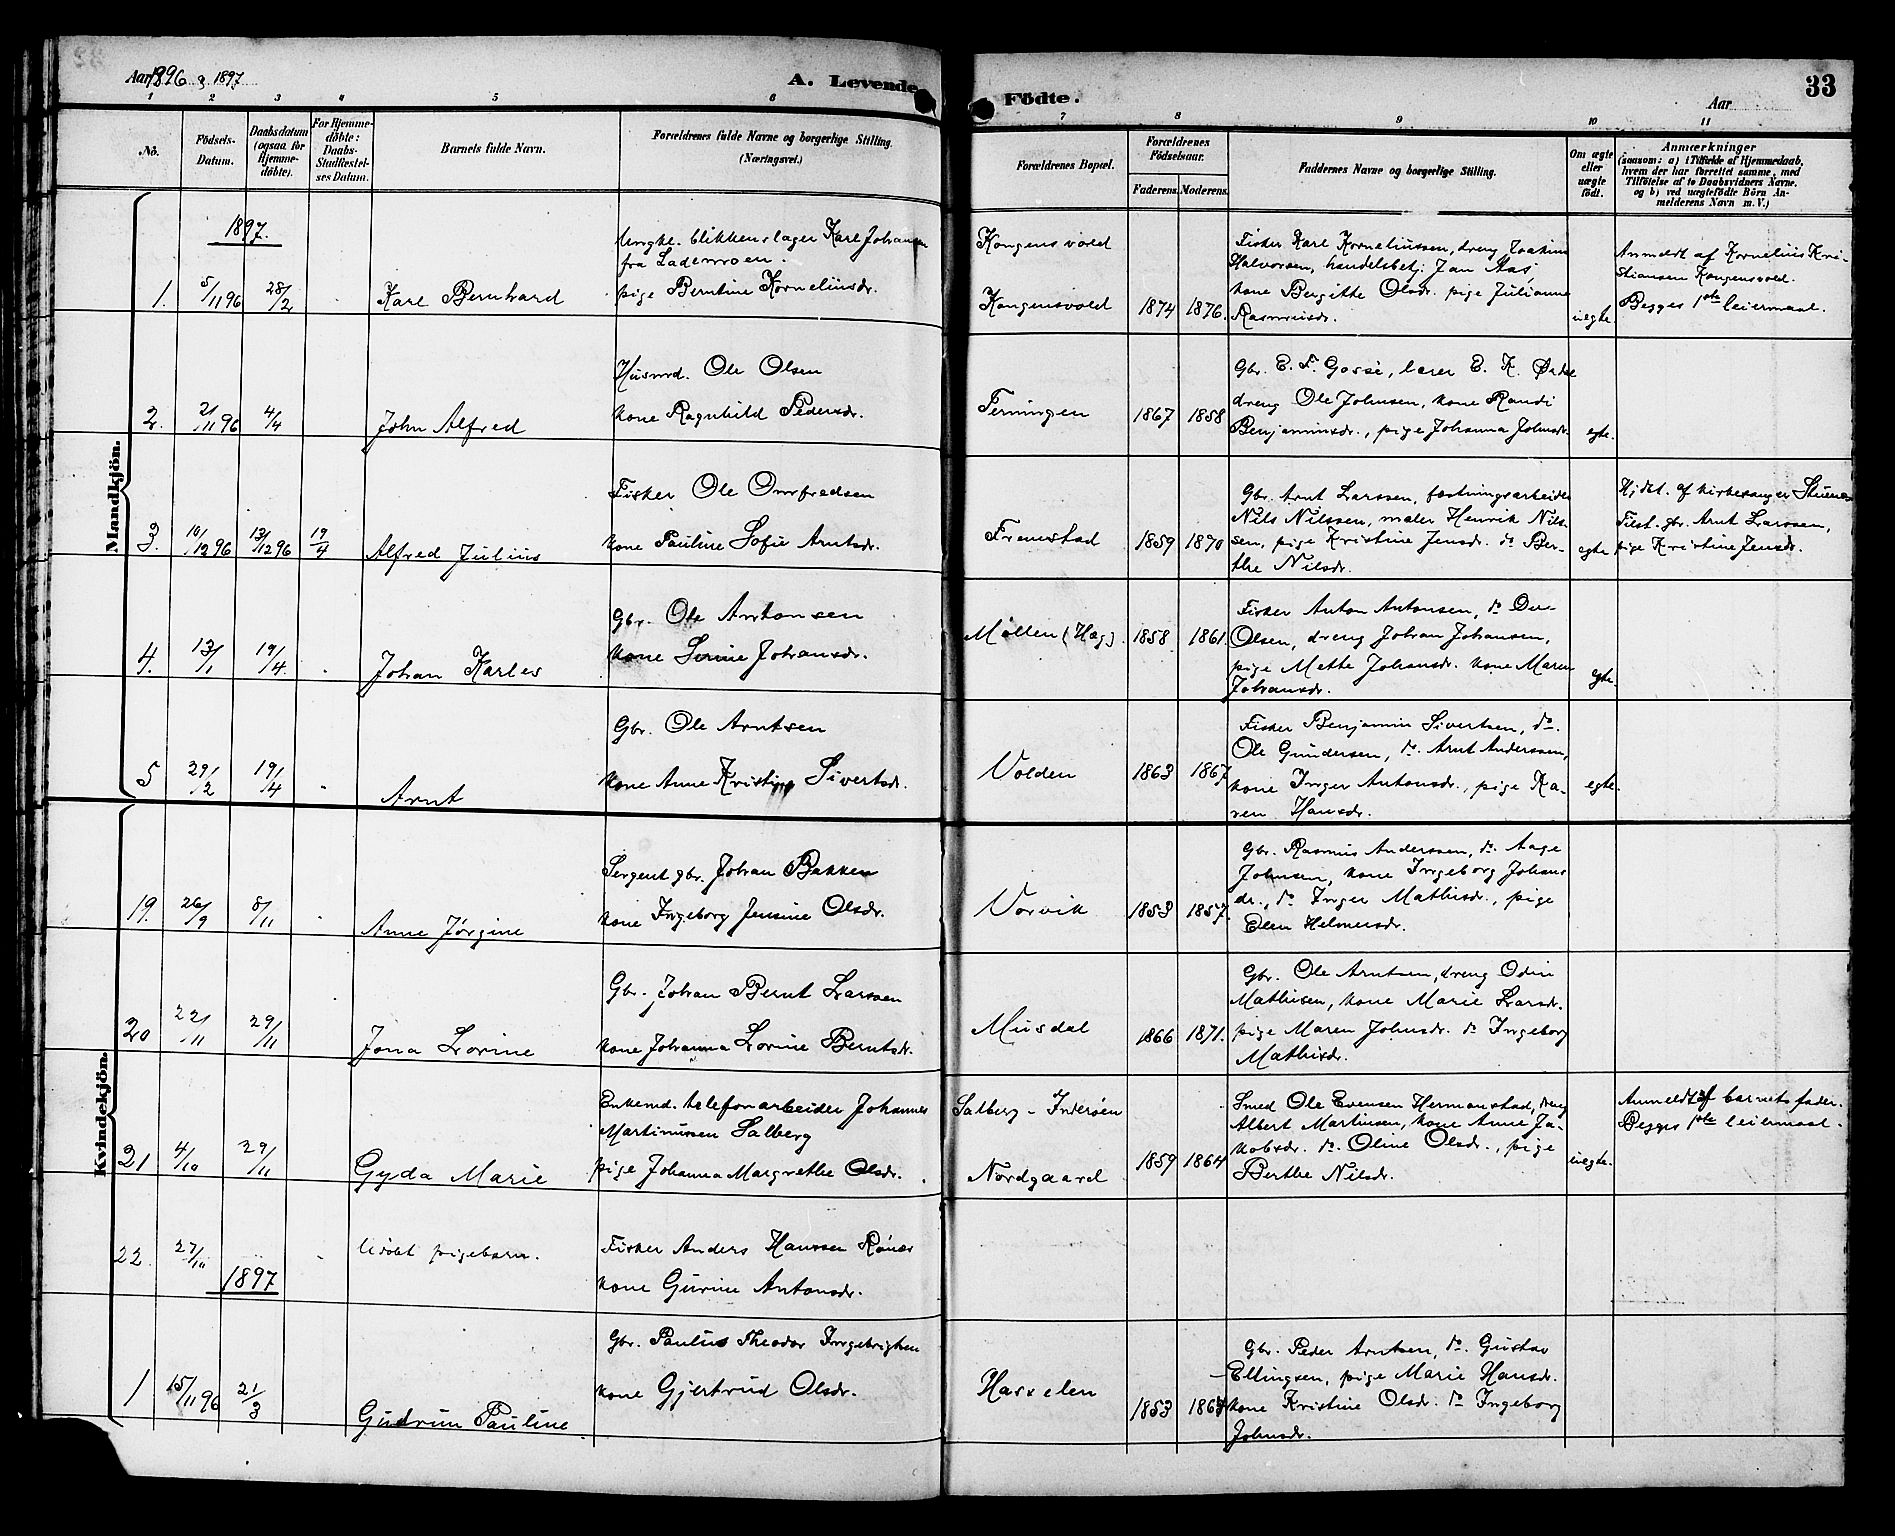 Aar 1896 & 1897
A. Levende Födte.
Aar
33
1 2 3 4 5 6 7 8 9 10 11
No.
Födsels-Datum.
Daabsdatum (ogsaa for Hjemme-döbte).
For Hjemme-döbte: Daabs-Stadfæstel-ses Datum.
Barnets fulde Navn.
Forældrenes fulde Navne og borgerlige Stilling. (Næringsvei.)
Forældrenes Bopæl.
Forældrenes Födselsaar.
Faderens. Moderens.
Faddernes Navne og borgerlige Stilling.
Om ægte eller uægte födt.
Anmærkninger
(saasom: a) i Tilfælde af Hjemmedaab,
hvem der har forrettet samme, med
Tilföielse af to Daabsvidners Navne,
og b) ved uægtefödte Börn An-
melderens Navn m. V.)
Mandkjön.
1897.
1. 5/11 96 28/2 Karl Bernhard
Ungke. blikkenslager Karl Johansen
fra Lademoen.
pige Berntine Kornelinsdr.
Kongensvold
Kongensvold 1874 1876.
Fisker Karl Korneliussen, dreng Joakim
Halvorsen, handelsbetj. Jan Aas
kone Bergitte Olsdr. pige Julianna
Rasmusdr.
uegte.
Anmeldt af Kornelius Kri-
stiansen Kongensvold.
Begges 1ste leiermaal.
2. 21/11 96 4/4 John Alfred
Husmd. Ole Olsen
kone Ragnhild Pedersdr.
Terningen 1867 1858
Gbr. E. F. Gossé, lærer E. K.
dreng Ole Johnsen, kone Randi
Benjaminsdr., pige Johanna Johnsdr.
egte.
3. 10/12 96 13/12 96 19/4 Alfred Julius
Fisker Ole Omfredsen
kone Pauline Sofie Arntsdr.
Fremstad 1859 1870
Gbr. Arnt Larssen, fæstningsarbeider
Nils Nilssen, maler Henrik Nils-
sen, pige Kristine Jensdr. do Ber-
the Nilsdr.
egte
Hjdbt. af kirkesanger
Tilst. gbr. Arnt Larssen,
pige Kristine Jensdr.
4. 13/1 19/4. Johan Karles
Gbr. Ole Antonsen
kone Serine Johansdr.
Möllen (Hag). 1858 1861.
Fisker Anton Antonsen, do Ole
Olsen, dreng Johan Johansen,
pige Mette Johansdr. kone Maren
Johansdr.
egte.
5 29/2 19/4 Arnt
Gbr. Ole Arntsen
kone Anne Kristine Sivertsdr.
Volden 1863 1867
Fisker Benjamin Sivertsen, do.
Ole Gundersen, do. Arnt Anderssen,
kone Inger Antonsdr., pige Ka-
ren Hansdr.
egte.
Kvindekjön.
19. 26/9 8/11 Anne Jørgine
Sergent gbr. Johan Bakken
kone Ingeborg Jensine Olsdr.
Vorvik 1853 1857.
Gbr. Rasmus Anderssen, do. Aage
Johnsen, kone Ingeborg Johans
dr., do Inger Mathisdr., pige
Elen Helmersdr.
20 22/11 29/11 Jona Lovine
Gbr. Johan Bernt Larssen
kone Johanna Lovine Berntsdr.
Musdal 1866 1871.
Gbr. Ole Arntsen, dreng Odin
Mathisen, kone Marie Larsdr.
pige Maren Johnsdr. do Ingeborg
Mathisdr.
21 4/10 29/11 Gyda Marie
Enkemd. telefonarbeider Johannes
Martinussen Salberg
pige Johanna Margrethe Olsdr.
Salberg - Inderøen
Nordgaard 1859 1864
Smed Ole Evensen Hermanstad, dreng
Albert Martinsen, kone Anne Ja-
kobsdr. do. Oline Olsdr., pige
Berthe Nilsdr.
uegte.
Anmeldt af barnets fader.
Begges 1ste leiermaal.
22. 27/10 Udöbt pigebarn.
Fisker Anders Hanssen Rönes
kone Gurine Antonsdr.
1897
1 15/11 96 21/3 Gudrun Pauline
Gbr. Paulus Theodor Ingebrigtsen
kone Gjertrud Olsdr.
Hasselen 1853 1867
Gbr. Peder Arntsen, do. Gustav
Ellingsen, pige Marie Hansdr.
kone Kristine Olsdr. do Ingeborg
Johnsdr.